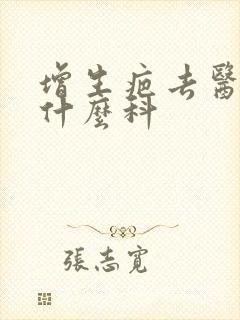 增生疤去醫
什麼科
張志寬